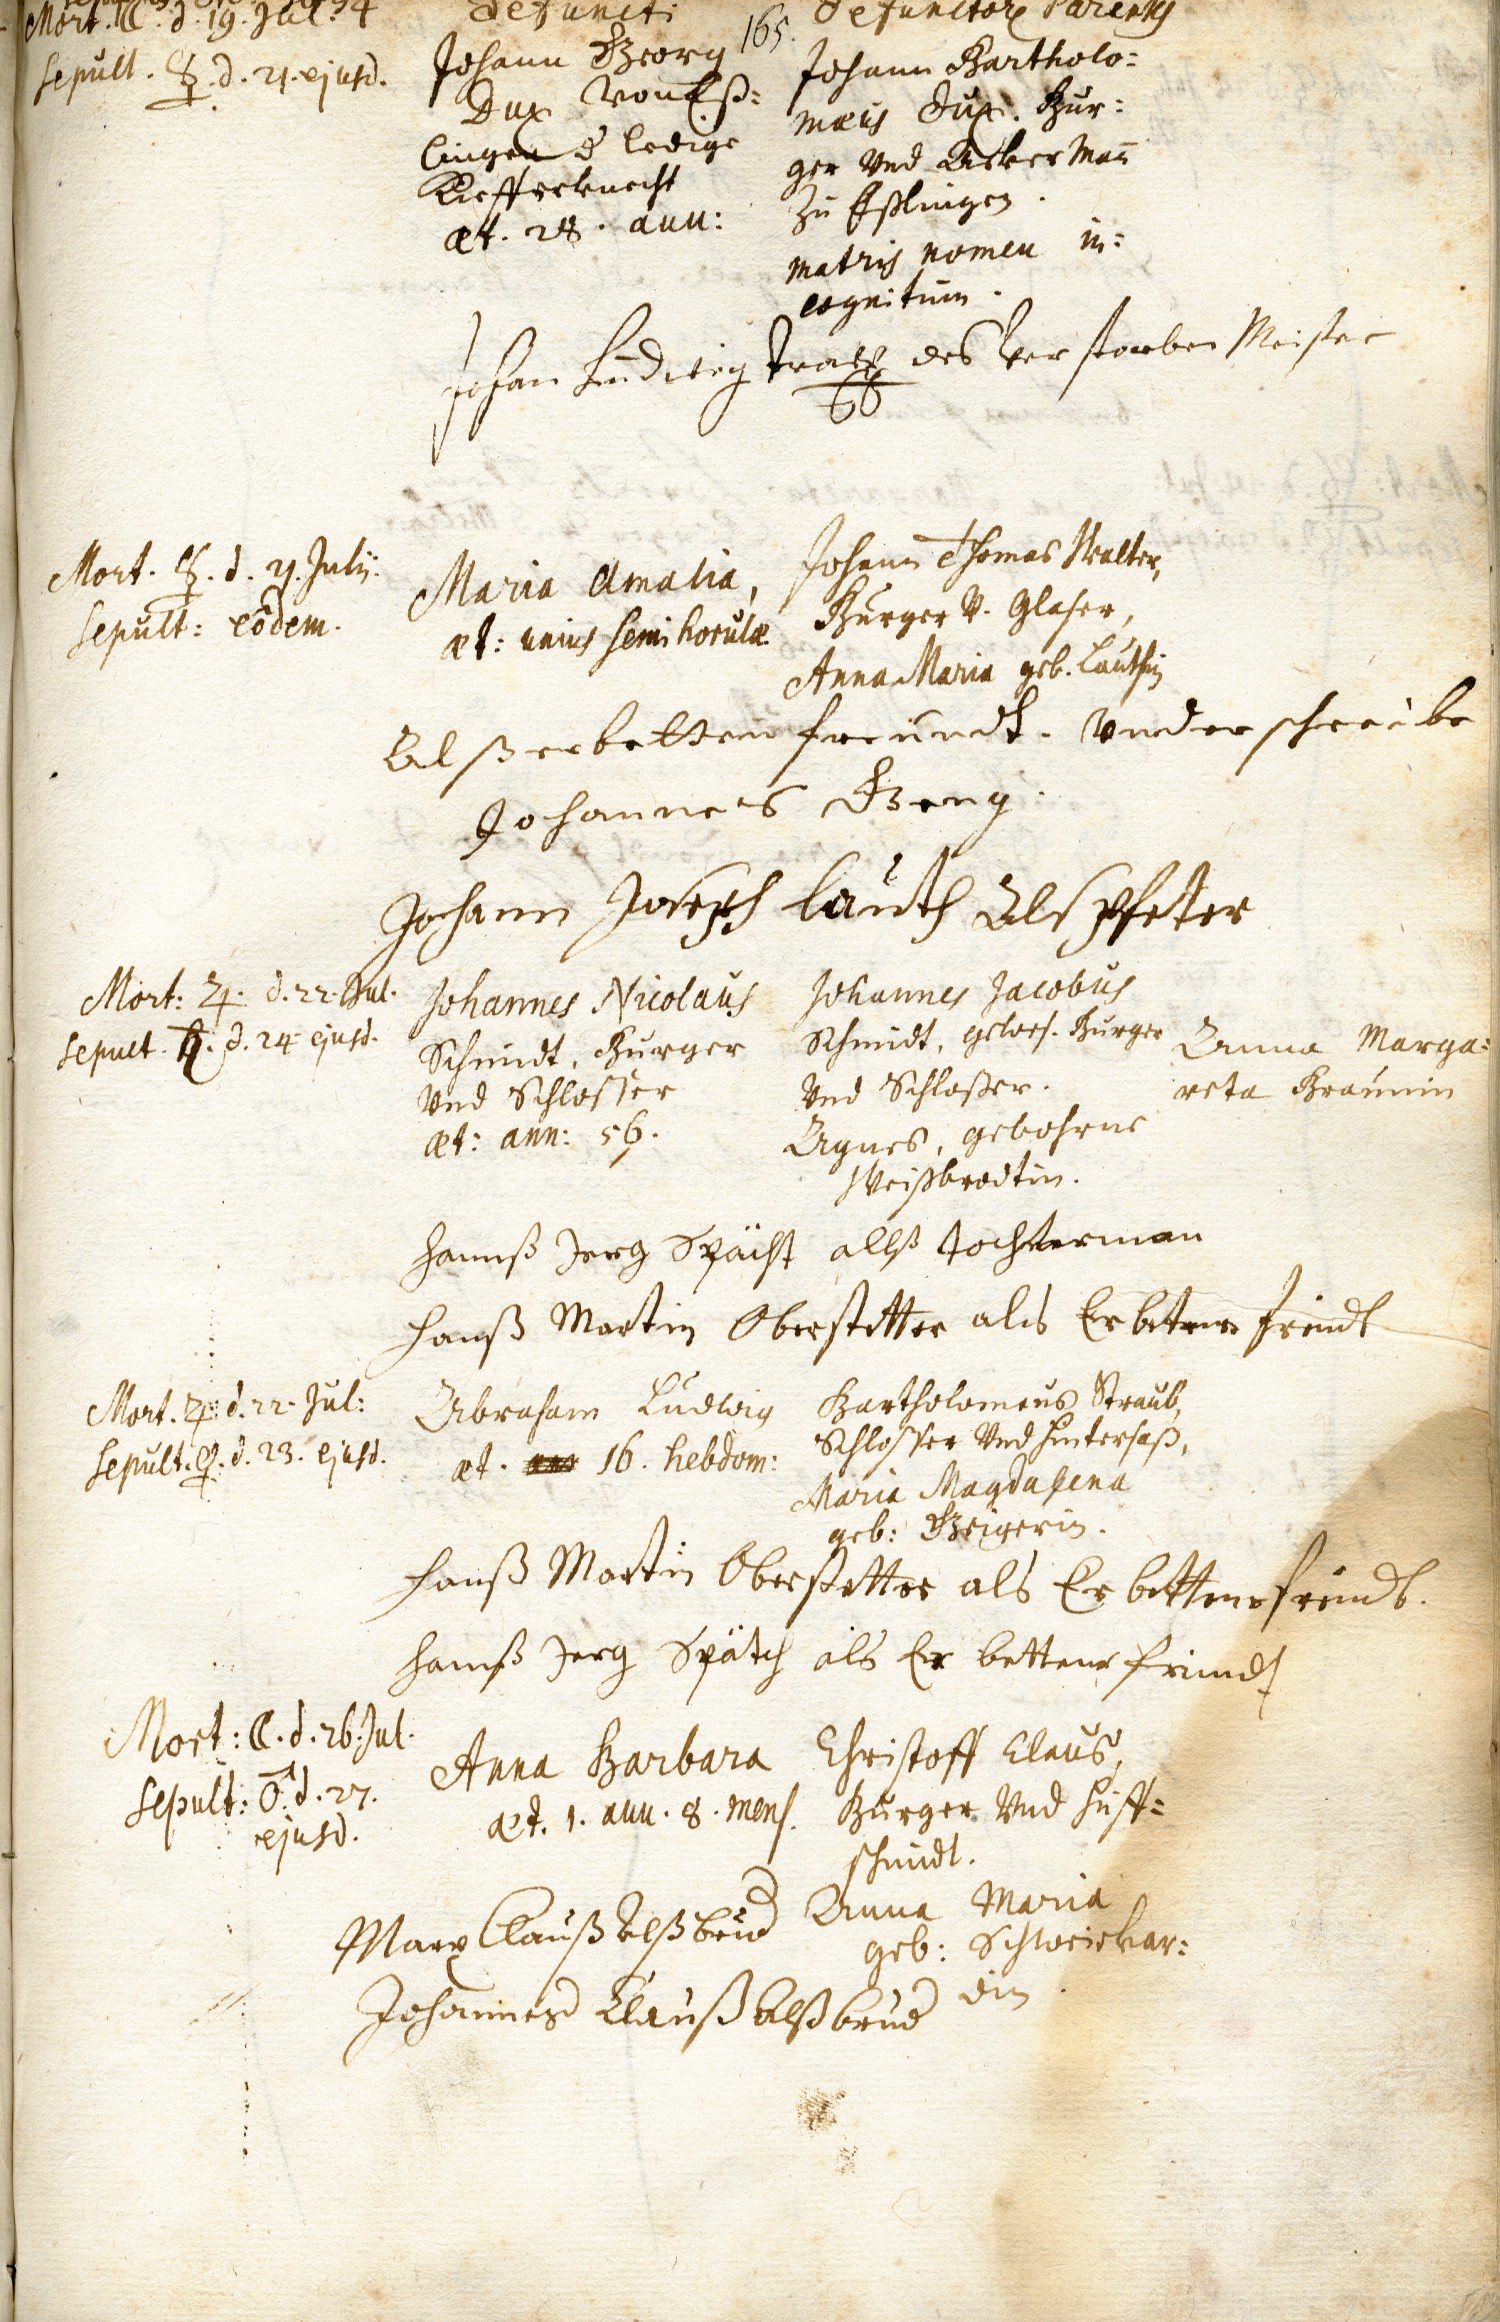 Mort. ☾. d. 19. Jul.
Sepult. ☿. d. 21. ejusd.
Defuncti
165.
Defunctorū Parentes
Johann Georg
Dux von Eß=
lingen d ledige
Kiefferknecht
æt. 28. ann:
Johann Bartholo=
mæus Dux. Bur=
ger und Ackermañ
zu Eßlingen.
matris nomen in=
cognitum.
Johan Ludwig des verstorben Meister
Mort. ☿. d. 21. Julij.
Sepult: eôdem.
Maria Amalia,
æt: unius semihorulæ
Johann Thomas Walter,
Burger v. Glaser,
Anna Maria geb. Lauthin
Alß erbetten freundt. underschreibe
Johannes Beng.
Johann Joseph Lauth Als Pfetter
Mort: ♃. d. 22. Jul.
Sepult. ♄. d. 24. ejusd.
Johannes Nicolaus
Schmidt, Burger
und Schlosser
æt: ann: 56.
Johannes Jacobus
Schmidt, gewes. Burger
und Schloßer.
Agnes, gebohrne
Weißbrodtin.
Anna Marga=
reta Braunin
Hannß Jerg Späht allß tochterman
Hanß Martin Oberstetter als Erbetner freindt
Mort. ♃. d. 22. Jul:
Sepult. ♀. d. 23. ejusd.
Abraham Ludwig
æt. 16. hebdom:
Bartholomeus Straub,
Schlosser und Hintersaß,
Maria Magdalena
geb: Geigerin.
Hanß Martin Oberstetter als Erbettner freindt.
Hanß Jerg Spätch als Er bettenr frindt
Mort: ☾. d. 26. Jul.
Sepult: ♂. d. 27.
ejusd.
Anna Barbara
æt. 1. ann. 8. mens.
Christoff Claus,
Burger und Huff=
schmidt.
Anna Maria
geb: Schweickar=
din
Marx Clauß Alß brud
Johannes Clauß Alß brud